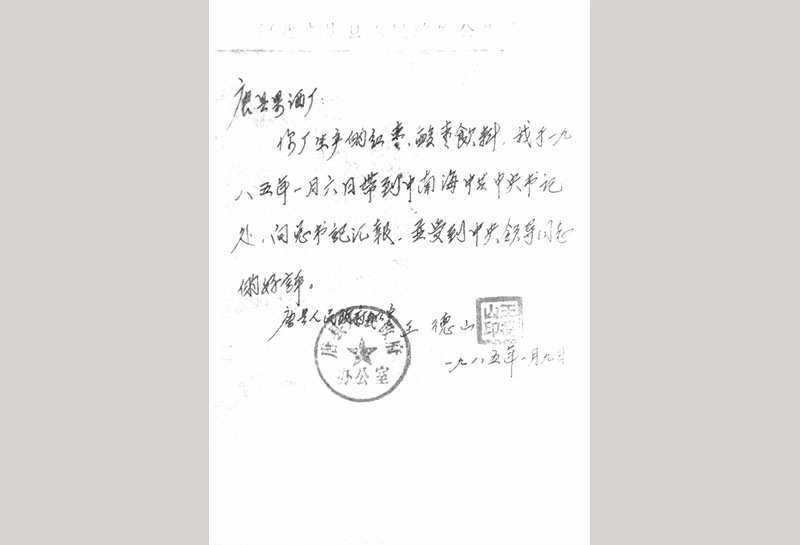 唐县果酒厂:
你厂生产的红枣、酸枣飲料,我于一九
八五年一月六日带到中南海中共中央书记
处,向总书記汇報,并受到中央領导同志
们好评。
唐县人民政府办公室 王德山
王德山印
唐县人民政府
办公室
一九八五年一月九日